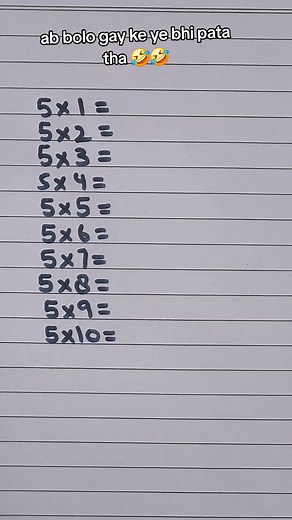 ab bolo gay ke ye bhi pata
tha 🤣🤣
5×1=
5×2=
5×3=
5×4=
5×5=
5×6=
5×7=
5×8=
5×9=
5×10=